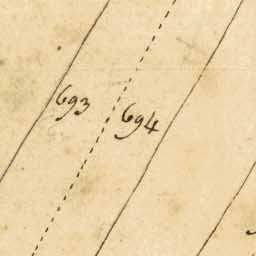 693
694